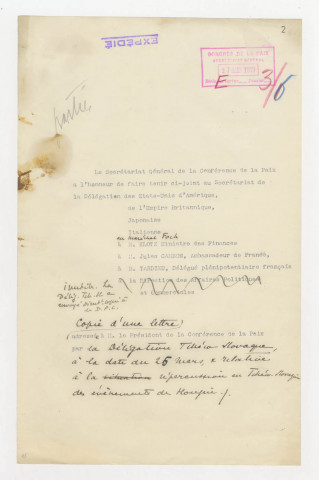 2
EXPÉDIÉ
E 3/6
parti
Le Secrétariat Général de la Conférence de la Paix
a l'honneur de faire tenir ci-joint au Secrétariat de
la Délégation des Etats-Unis d'Amérique,
de l'Empire Britannique,
Japonaise
Italienne
au maréchal Foch
à M. KLOTZ Ministre des Finances
à M. Jules CAMBON, Ambassadeur de France,
à M. TARDIEU, Délégué plénipotentiaire français
à la Direction des Affaires Politiques
et Commerciales
inutile. La
Délég. Tch. Sl. a
envoyé
Copie d'une lettre
adressée à M. le Président de la Conférence de la Paix
par la Délégation Tchéco Slovaque,
à la date du 26 mars, & relative
à la situation répercussion en Tchéco Slovaquie
des événements de Hongrie.